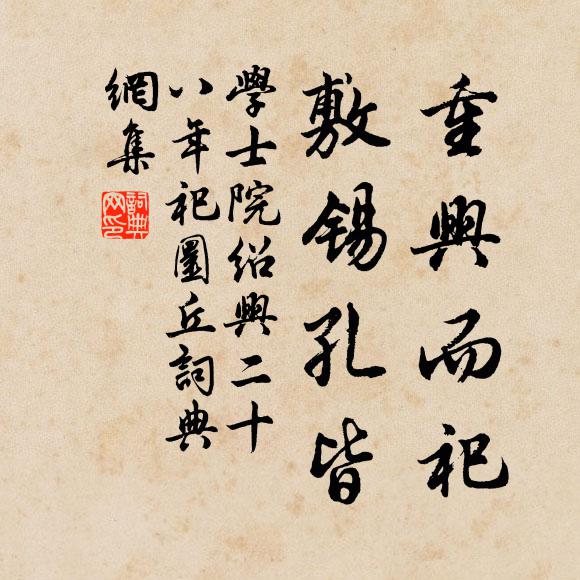 重興而祀
敷錫孔皆
學士院紹興二十
八年祀圜丘詞典
網集
詞典
网印